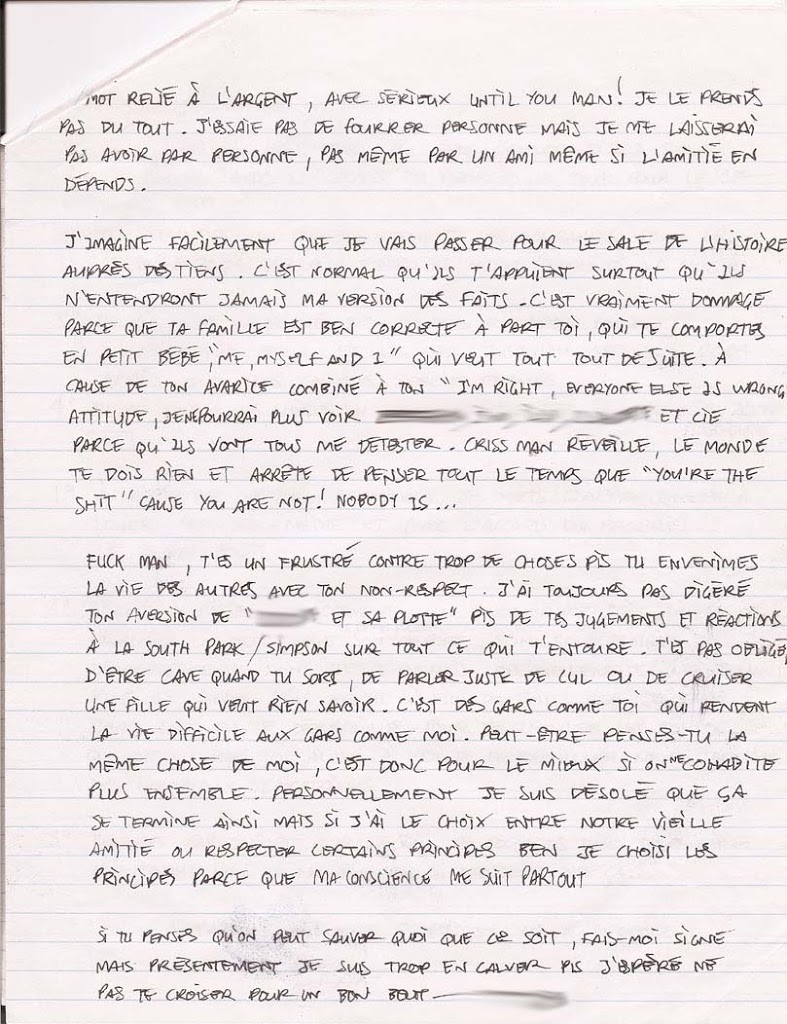 MOT RELIÉ À L'ARGENT, AVEC SÉRIEUX UNTIL YOU MAN! JE LE PRENDS
PAS DU TOUT. J'ESSAIE PAS DE FOURRER PERSONNE MAIS JE ME LAISSERAI
PAS AVOIR PAR PERSONNE, PAS MÊME PAR UN AMI MÊME SI L'AMITIÉ EN
DÉPENDS.
J'IMAGINE FACILEMENT QUE JE VAIS PASSER POUR LE SALE DE L'HISTOIRE
AUPRÈS DES TIENS. C'EST NORMAL QU'ILS T'APPUIENT SURTOUT QU'ILS
N'ENTENDRONT JAMAIS MA VERSION DES FAITS. C'EST VRAIMENT DOMMAGE
PARCE QUE TA FAMILLE EST BEN CORRECTE À PART TOI, QUI TE COMPORTES
EN PETIT BÉBÉ, "ME, MYSELF AND I" QUI VEUT TOUT TOUT DE SUITE. À
CAUSE DE TON AVARICE COMBINÉ À TON "I'M RIGHT, EVERYONE ELSE IS WRONG
ATTITUDE, JE NE POURRAI PLUS VOIR ET CIE
PARCE QU'ILS VONT TOUS ME DÉTESTER. CRISS MAN RÉVEILLE, LE MONDE
TE DOIS RIEN ET ARRÊTE DE PENSER TOUT LE TEMPS QUE "YOU'RE THE
SHIT" CAUSE YOU ARE NOT! NOBODY IS...
FUCK MAN, T'ES UN FRUSTRÉ CONTRE TROP DE CHOSES PIS TU ENVENIMES
LA VIE DES AUTRES AVEC TON NON-RESPECT. J'AI TOUJOURS PAS DIGÉRÉ
TON AVERSION DE " ET SA PLOTTE" PIS DE TES JUGEMENTS ET RÉACTIONS
À LA SOUTH PARK/SIMPSON SUR TOUT CE QUI T'ENTOURE. T'ES PAS OBLIGÉ
D'ÊTRE CAVE QUAND TU SORS, DE PARLER JUSTE DE CUL OU DE CRUISER
UNE FILLE QUI VEUT RIEN SAVOIR. C'EST DES GARS COMME TOI QUI RENDENT
LA VIE DIFFICILE AUX GARS COMME MOI. PEUT-ÊTRE PENSES-TU LA
MÊME CHOSE DE MOI, C'EST DONC POUR LE MIEUX SI ON NE COHABITE
PLUS ENSEMBLE. PERSONNELLEMENT JE SUIS DÉSOLÉ QUE ÇA
SE TERMINE AINSI MAIS SI J'AI LE CHOIX ENTRE NOTRE VIEILLE
AMITIÉ OU RESPECTER CERTAINS PRINCIPES BEN JE CHOISI LES
PRINCIPES PARCE QUE MA CONSCIENCE ME SUIT PARTOUT
SI TU PENSES QU'ON PEUT SAUVER QUOI QUE CE SOIT, FAIS-MOI SIGNE
MAIS PRÉSENTEMENT JE SUIS TROP EN CALVER PIS J'ESPÈRE NE
PAS TE CROISER POUR UN BON BOUT